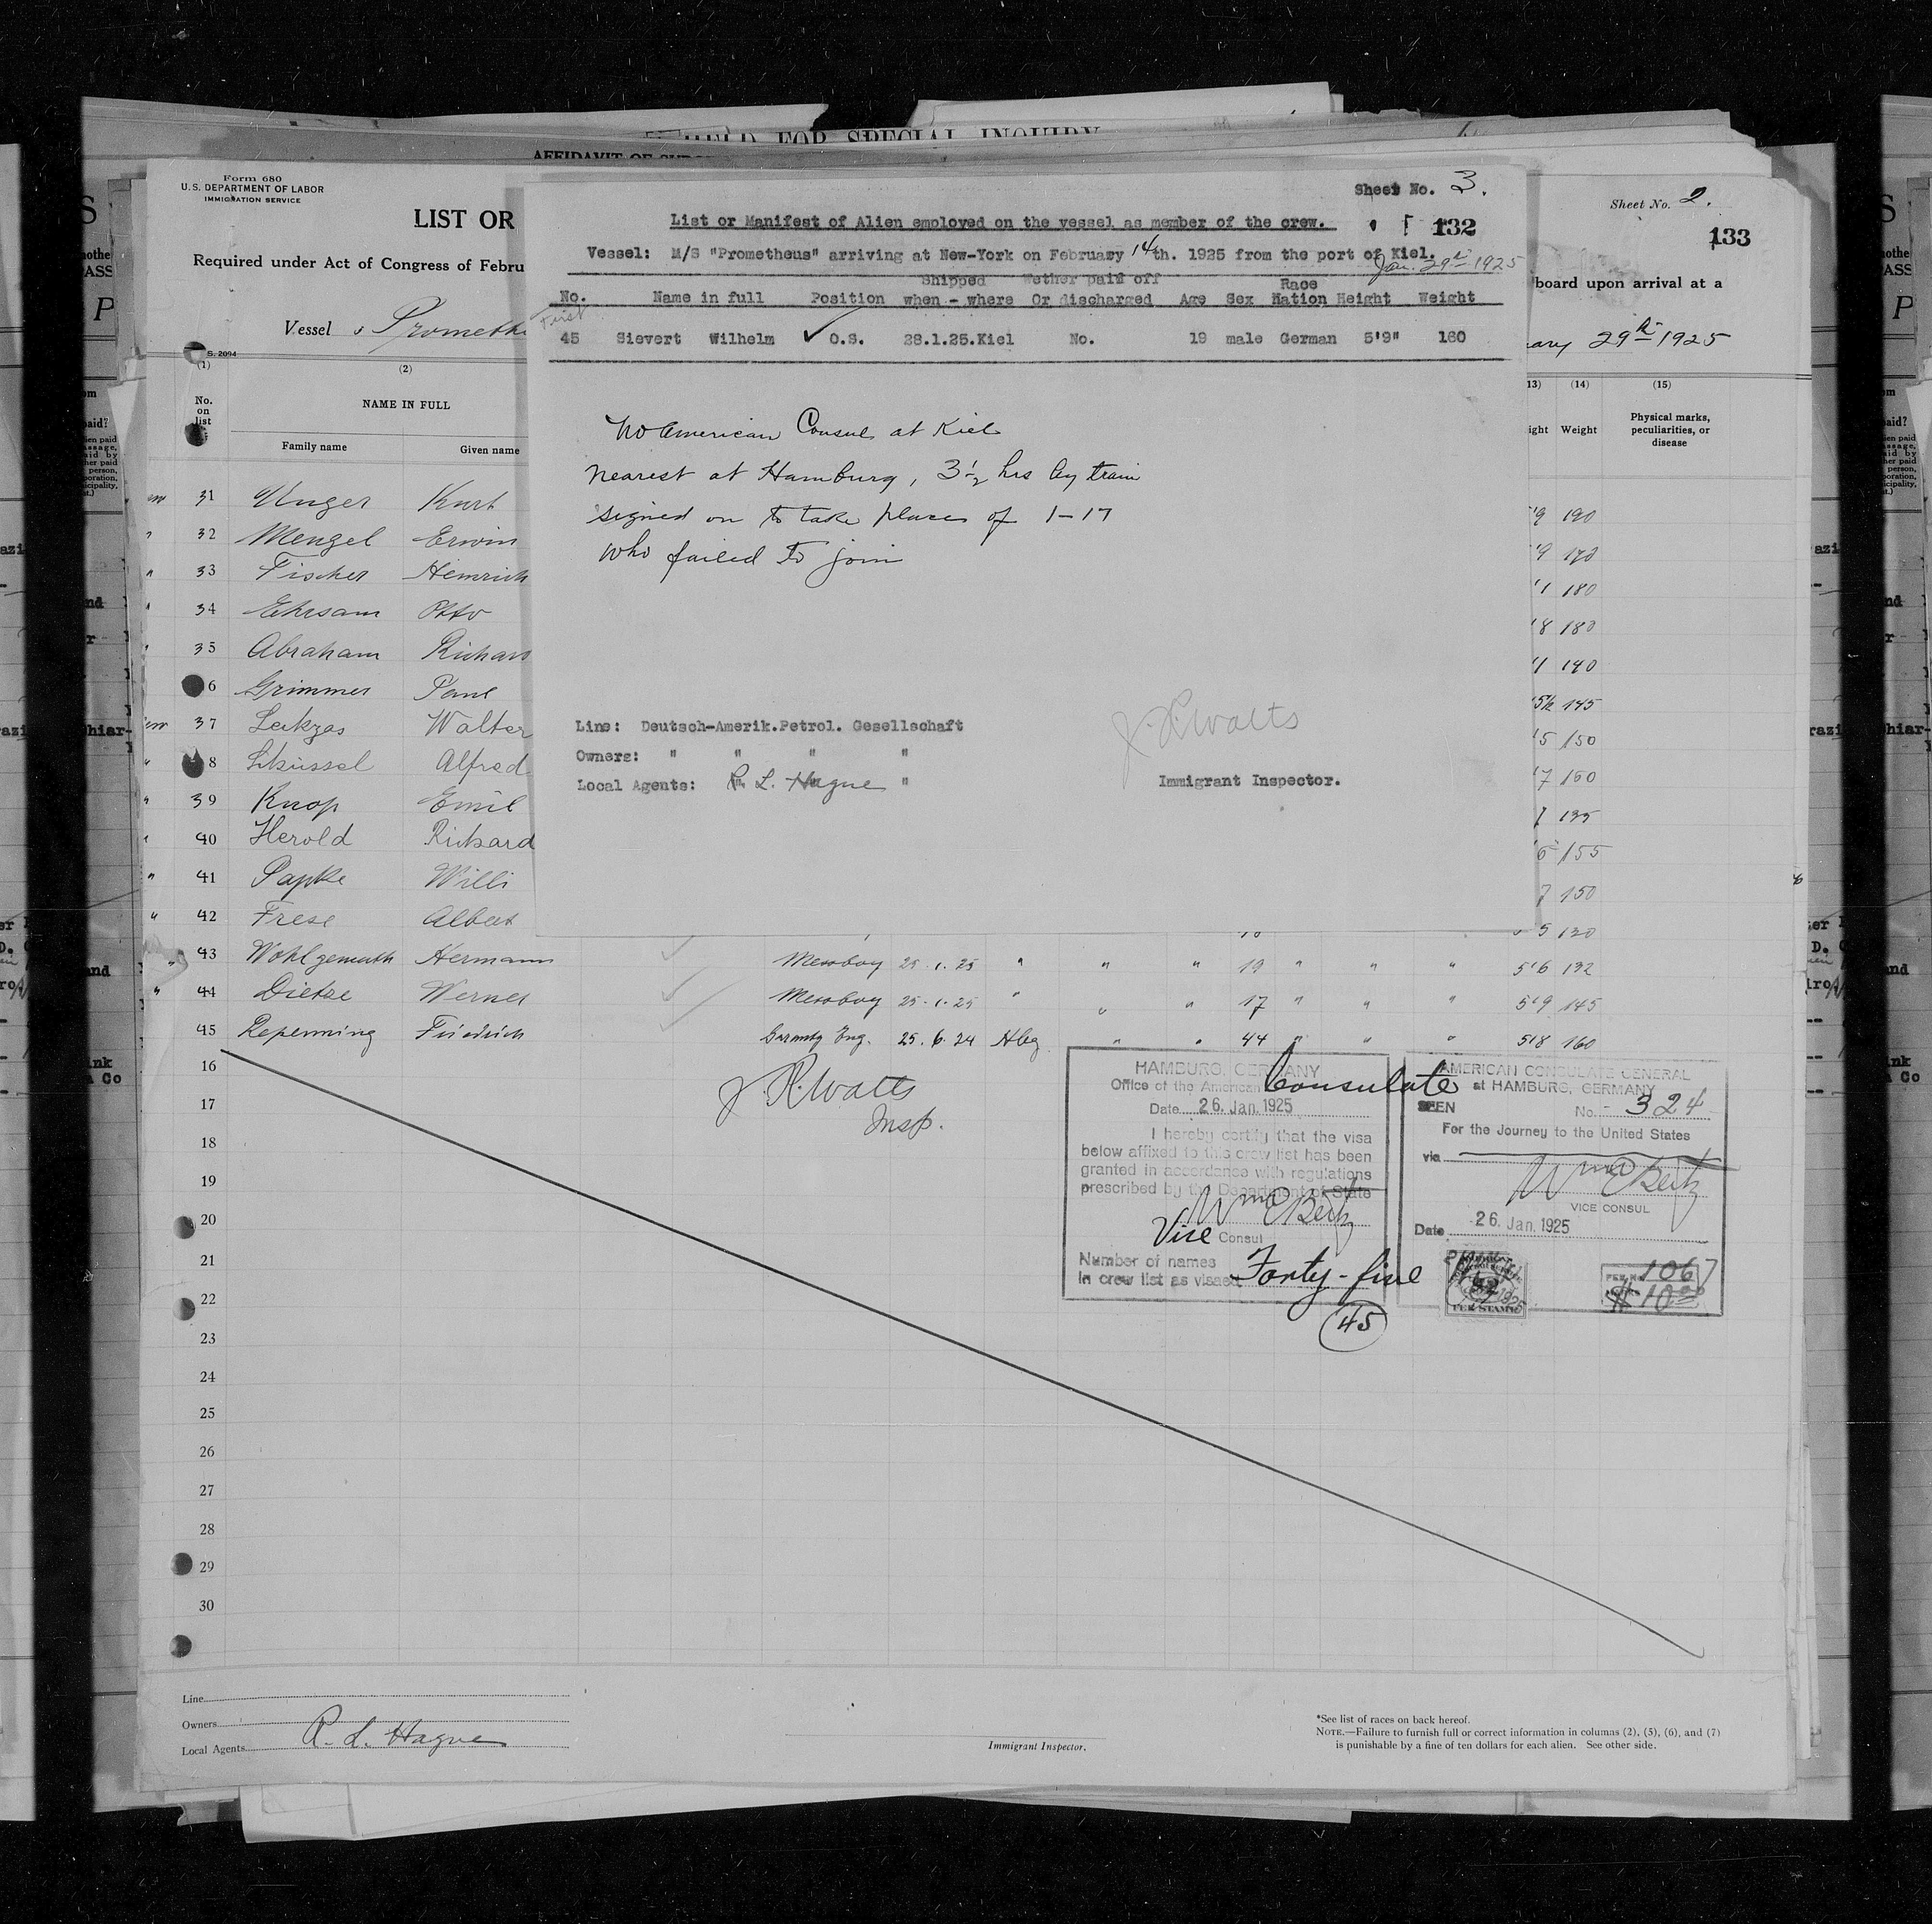 HELD FOR SPECIAL INQUIRY
Form 680
U.S. DEPARTMENT OF LABOR
IMMIGRATION SERVICE
LIST OR
Required under Act of Congress of Febru
Vessel
S. 2094
(1) (2)
No. on list
NAME IN FULL
Family name Given name
Sheet No. 3.
List or Manifest of Alien employed on the vessel as member of the crew.
132
Vessel: M/S "Prometheus" arriving at New-York on February 14th. 1925 from the port of Kiel.
Jan. 29th 1925
Shipped Wether paid off Race
No. Name in full Position when - where Or discharged Age Sex Nation Height Weight
First
45 Sievert Wilhelm O.S. 28.1.25.Kiel No. 19 male German 5'9" 160
No American Consul at Kiel
nearest at Hamburg, 3 1/2 hrs by train
signed on to take place of 1-17
who failed to join
J. R. Watts
Line: Deutsch-Amerik.Petrol. Gesellschaft
Owners: " " " "
Local Agents: R. L. Hague "
Immigrant Inspector.
Sheet No. 2.
133
board upon arrival at a
uary 29th 1925
13) (14) (15)
ight Weight Physical marks, peculiarities, or disease
31 Unger Kurt '9 190
32 Mengel Erwin '9 170
33 Fischer Heinrich '1 180
34 Ehrsam Otto '8 180
35 Abraham Richard '1 140
6 Grimmer Paul 145
37 Walter '5 150
8 Alfred '7 160
39 Knop Emil 135
40 Herold Richard 155
41 Papke Willi 7 150
42 Frese Albert 5 130
43 Wohlgemuth Hermann Messboy 25.1.25 " " " 19 " " " 5'6 132
44 Dietze Werner Messboy 25.1.25 " " " 17 " " " 5'9 145
45 Repenning Friedrich Garanty Eng. 25.6.24 Hbg " " 44 " " " 5'8 160
16
17
18
19
20
21
22
23
24
25
26
27
28
29
30
J R. Watts
Insp.
HAMBURG, GERMANY
Office of the American Consulate
Date 26. Jan. 1925
I hereby certify that the visa
below affixed to this crew list has been
granted in accordance with regulations
prescribed by the Department of State
Vice Consul
Number of names
in crew list as visaed Forty-five
45
AMERICAN CONSULATE GENERAL
at HAMBURG, GERMANY
SEEN No. 324
For the Journey to the United States
via
VICE CONSUL
Date 26. Jan. 1925
FEE STAMP
FEE No. 1067
$ 10.00
Line
Owners
Local Agents R. L. Hague
Immigrant Inspector.
*See list of races on back hereof.
NOTE.—Failure to furnish full or correct information in columns (2), (5), (6), and (7)
is punishable by a fine of ten dollars for each alien. See other side.